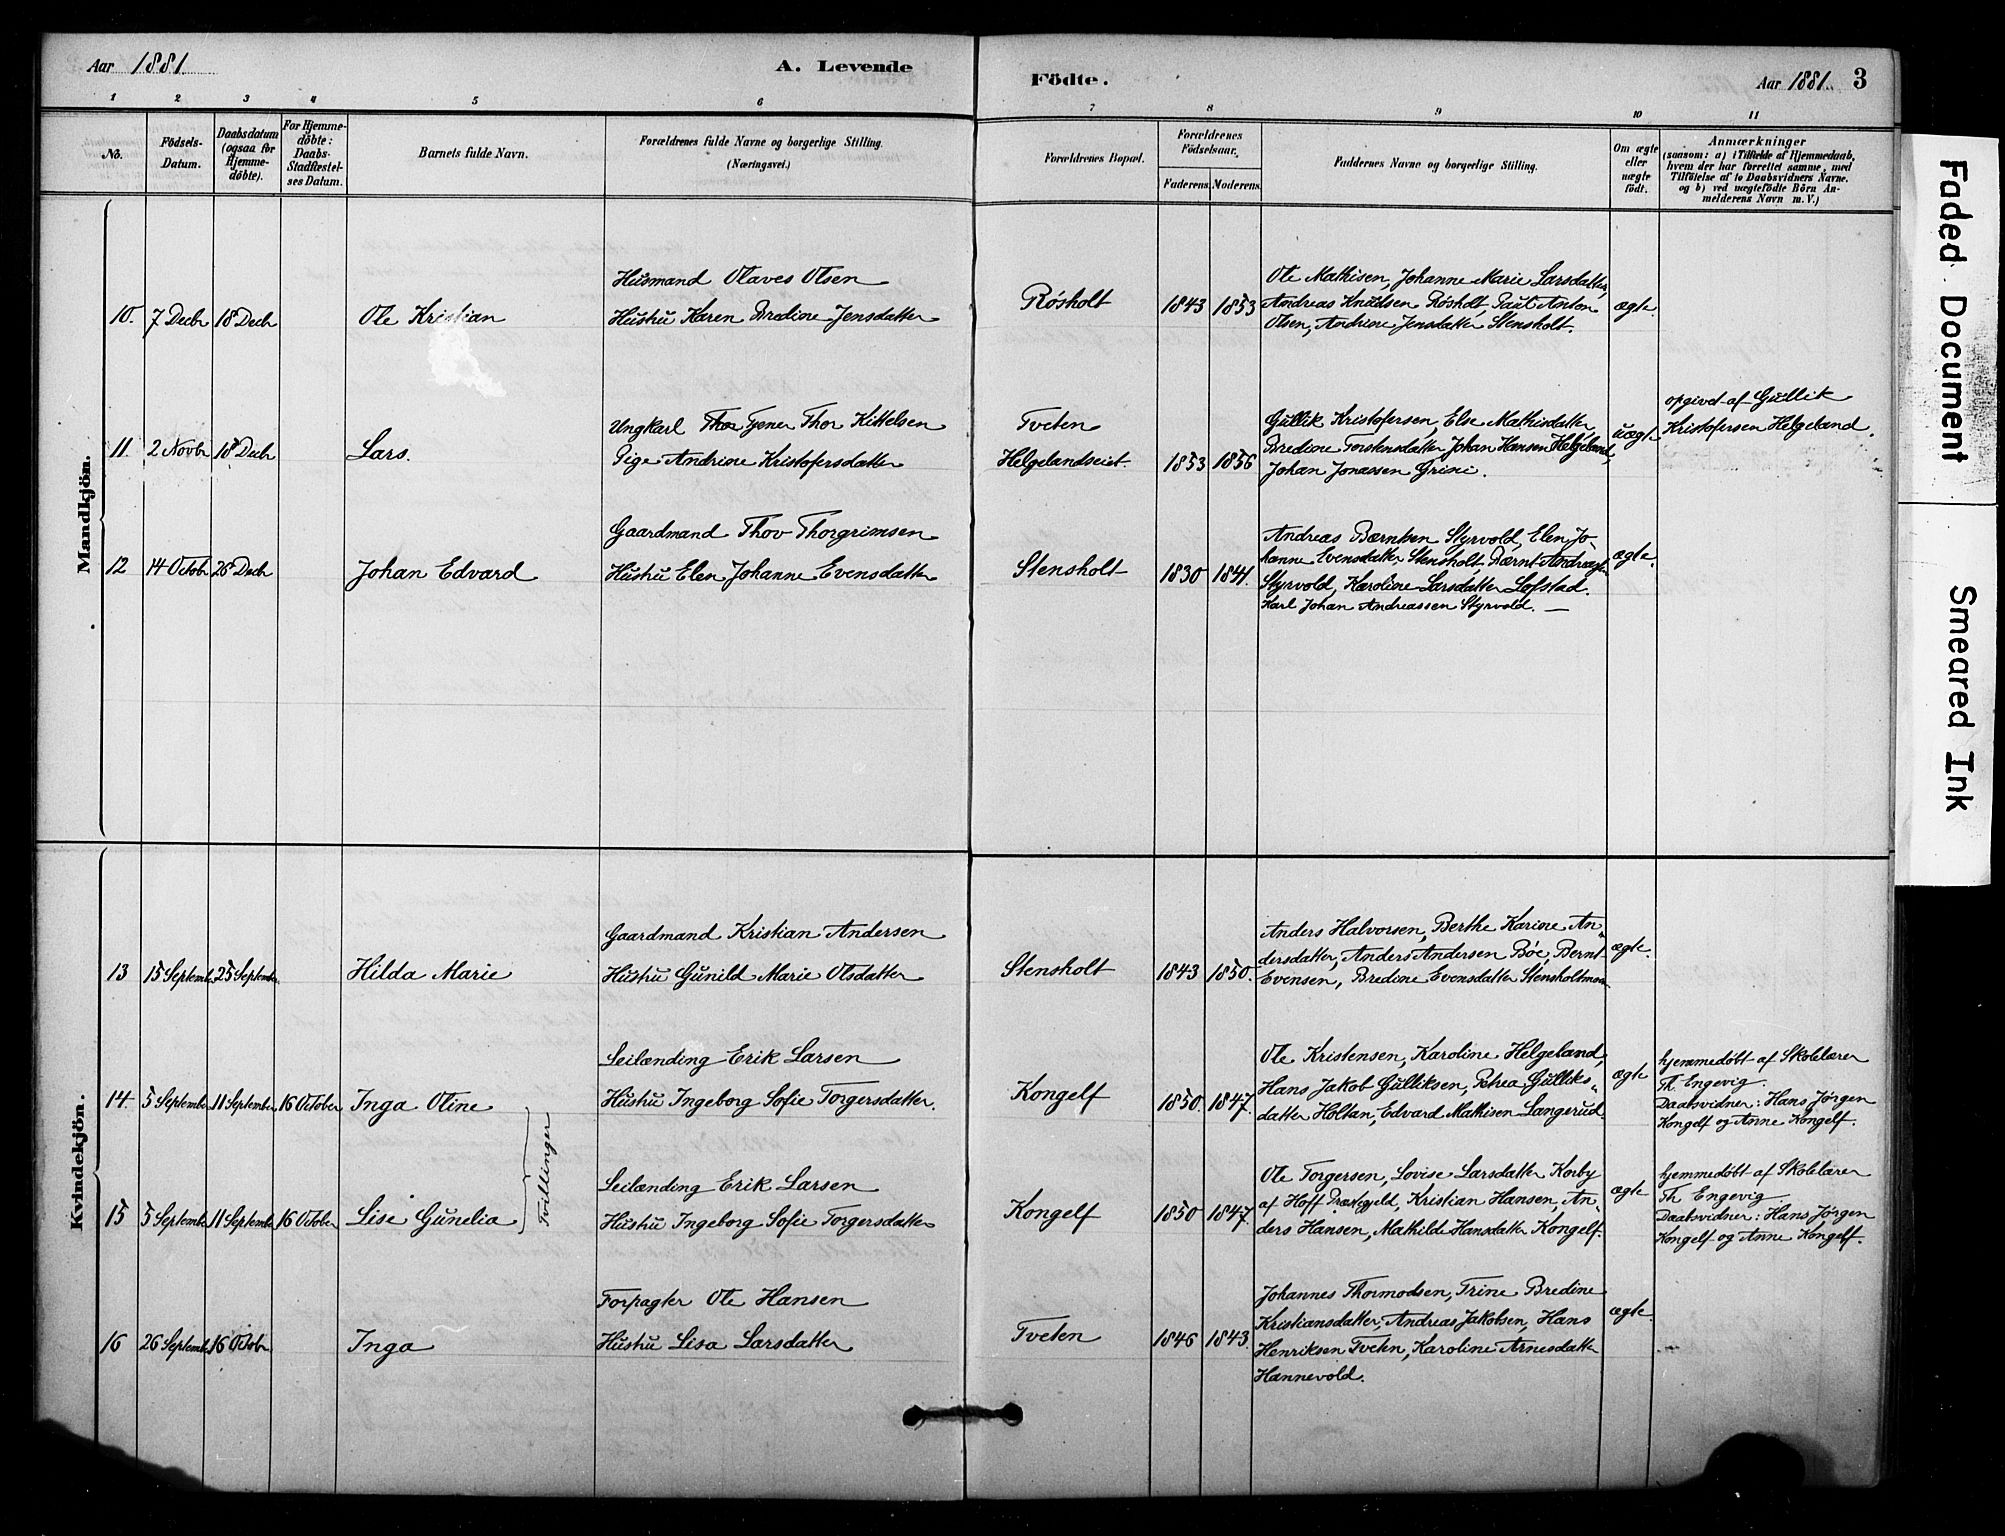 Aar 1881. A. Levende Födte. Aar 1881. 3
1 2 3 4 5 6 7 8 9 10 11
No.
Födsels-
Datum.
Daabsdatum
(ogsaa for
Hjemme-
döbte).
For Hjemme-
döbte:
Daabs-
Stadfæstel-
ses Datum.
Barnets fulde Navn.
Forældrenes fulde Navne og borgerlige Stilling.
(Næringsvei.)
Forældrenes Bopæl.
Forældrenes
Födselsaar.
Faderens. Moderens.
Faddernes Navne og borgerlige Stilling.
Om ægte
eller
uægte
födt.
Anmærkninger
(saasom: a) i Tilfælde af Hjemmedaab,
hvem der har forrettet samme, med
Tilföielse af to Daabsvidners Navne.
og b) ved uægtefödte Börn An-
melderens Navn m. V.)
Mandkjön.
10. 7 Decbr 18 Decbr
Ole Kristian
Husmand Olaves Olsen
Hustru Karen Bredine Jensdatter
Røsholt
1843 1853
Ole Mathisen, Johanne Marie Larsdatter,
Andreas Knudsen Røsholt, Paul Anton
Olsen, Andrine Jensdatter Stensholt.
ægte.
11. 2 Novbr 18 Decbr
Lars.
Ungkarl Thor Tjener Thor Kittelsen
Pige Andrine Kristofersdatter
Tveten
Helgelandseiet.
1853 1856
Gullik Kristofersen, Else Mathisdatter,
Bredine Torstensdatter, Johan Hansen Helgeland,
Johan Jonassen Grini.
uægte
opgivet af Gullik
Kristofersen Helgeland.
12 14 Octobr 26 Decbr
Johan Edvard
Gaardmand Thov Thorgrimsen
Hustru Elen Johanne Evensdatter
Stensholt
1830 1841.
Andreas Bærntsen Styrvold, Elen Jo-
hanne Evensdatter Stensholt, Bærnt Andreassen
Styrvold, Karoline Larsdatter Lofstad.
Karl Johan Andreassen Styrvold. —
ægte.
Kvindekjön.
13 15 Septembr 25 September.
Hilda Marie
Gaardmand Kristian Andersen
Hustru Gunild Marie Olsdatter
Stensholt
1843 1850.
Anders Halvorsen, Berthe Karine An-
dersdatter, Anders Andersen Bøe, Bernt
Evensen, Bredine Evensdatter Stensholtmoen
ægte.
14. 5 September 11 September 16 October
Inga Otine
Tvillinger
Leilænding Erik Larsen
Hustru Ingeborg Sofie Torgersdatter.
Kongelf
1850. 1847.
Ole Kristensen, Karoline Helgeland,
Hans Jakob Gulliksen, Petrea Gulliks-
datter Holtan, Edvard Mathisen Langerud.
ægte
hjemmedøbt af Skolelærer
Th. Engevig.
Daabsvidner: Hans Jørgen
Kongelf og Anne Kongelf.
15 5 September 11 September 16 October
Lise Gunelia
Leilænding Erik Larsen
Hustru Ingeborg Sofie Torgersdatter
Kongelf
1850 1847.
Ole Torgersen, Lovise Larsdatter Korby
af Hoff Præstegjeld, Kristian Hansen, An-
ders Hansen, Mathilde Hansdatter Kongelf.
ægte
hjemmedøbt af Skolelærer
Th Engevig.
Daabsvidner: Hans Jørgen
Kongelf og Anne Kongelf.
16 26 Septembr 16 Octobr
Inga
Forpagter Ole Hansen
Hustru Lisa Larsdatter
Tveten
1846 1843.
Johannes Thormodsen, Trine Bredine
Kristiansdatter, Andreas Jakobsen, Hans
Henriksen Tveten, Karoline Arnesdatter
Hannevold.
ægte.
Faded Document
Smeared Ink